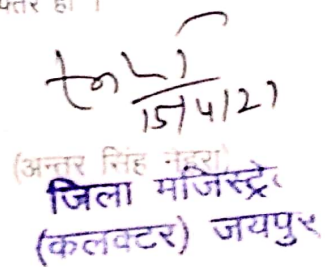 15/4/21
(अन्तर सिंह नेहरा)
जिला मजिस्ट्रे
(कलक्टर) जयपुर